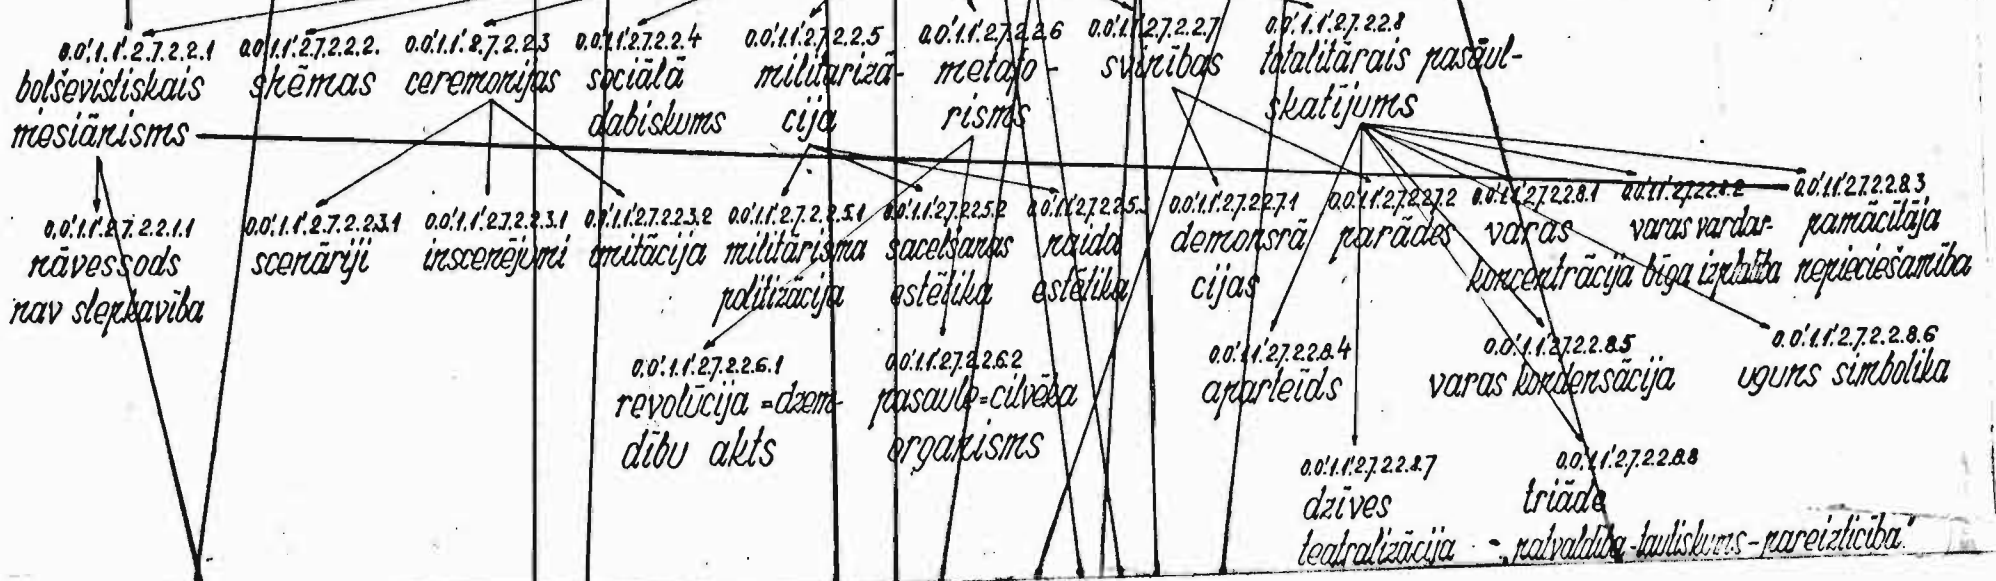 0.0'.1.1'.2.7.2.2.1
boļševistiskais
mesiānisms
0.0'.1.1'.2.7.2.2.2.
shēmas
0.0'.1.1'.2.7.2.2.3
ceremonijas
0.0'.1.1'.2.7.2.2.4
sociālā
dabiskums
0.0'.1.1'.2.7.2.2.5
militarizā-
cija
0.0'.1.1'.2.7.2.2.6
metafo-
risms
0.0'.1.1'.2.7.2.2.7
svinības
0.0'.1.1'.2.7.2.2.8
totalitārais pasaul-
skatījums
0.0'.1.1'.2.7.2.2.1.1
nāvessods
nav slepkavība
0.0'.1.1'.2.7.2.2.3.1
scenāriji
0.0'.1.1'.2.7.2.2.3.1
inscenējumi
0.0'.1.1'.2.7.2.2.3.2
imitācija
0.0'.1.1'.2.7.2.2.5.1
militārisma
politizācija
0.0'.1.1'.2.7.2.2.5.2
sacelšanās
estētika
0.0'.1.1'.2.7.2.2.5.
naida
estētika
0.0'.1.1'.2.7.2.2.7.1
demonsrā
cijas
0.0'.1.1'.2.7.2.2.7.2
parādes
0.0'.1.1'.2.7.2.2.8.1
varas
koncentrācija
0.0'.1.1'.2.7.2.2.8.2
varas vardar-
bīga izplatība
0.0'.1.1'.2.7.2.2.8.3
pamācītāja
nepieciešamība
0.0'.1.1'.2.7.2.2.6.1
revolūcija = dzem-
dību akts
0.0'.1.1'.2.7.2.2.6.2
pasaule = cilvēka
organisms
0.0'.1.1'.2.7.2.2.8.4
aparteīds
0.0'.1.1'.2.7.2.2.8.5
varas kondensācija
0.0'.1.1'.2.7.2.2.8.6
uguns simbolika
0.0'.1.1'.2.7.2.2.8.7
dzīves
teatralizācija
0.0'.1.1'.2.7.2.2.8.8
triāde
- „patvaldība - tautiskums - pareizticība"